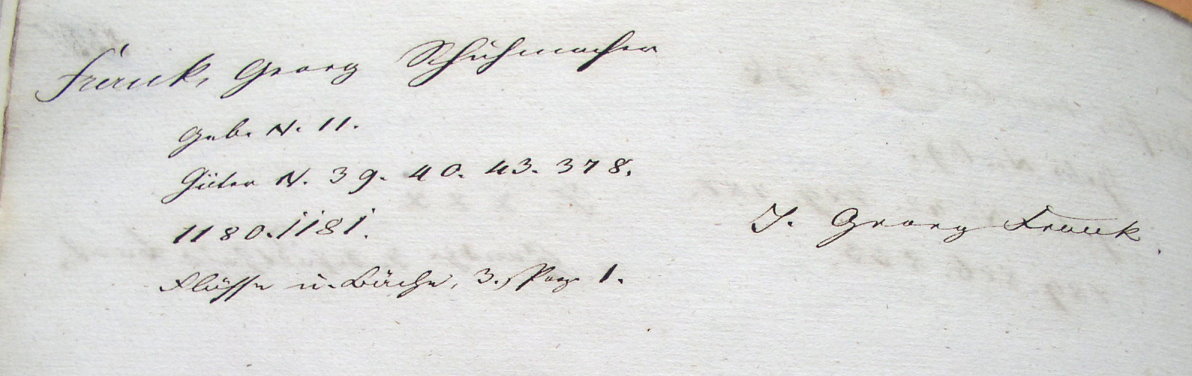 Frank, Georg Schuhmacher
Geb. N. 11.
Güter N. 39. 40. 43. 378.
1180. 1181.
Flüsse u. Bäche, 3., Pag. 1.
J. Georg Frank.